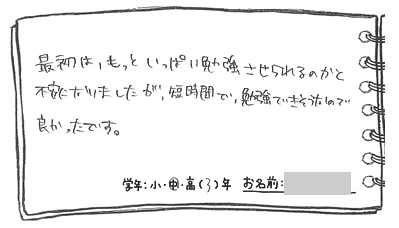 最初は、もっと いっぱい勉強 させられるのかと
不安になりましたが、短時間で、勉強できそうなので
良かったです。
学年:小・中・高(3)年 お名前: